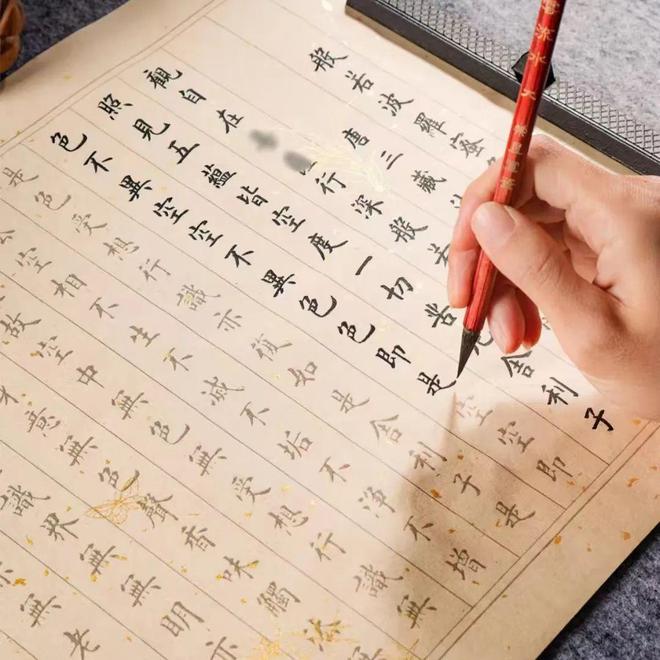 般若波羅蜜
唐三藏
觀自在行深般若
照見五蘊皆空度一切苦厄舍利子
色不異空空不異色色即是空空即
是色受想行識亦復如是舍利子是
空相不生不滅不垢不淨不增
故空中無色無受想行識無
意無色聲香味觸法
識界無無明亦
無老
流水